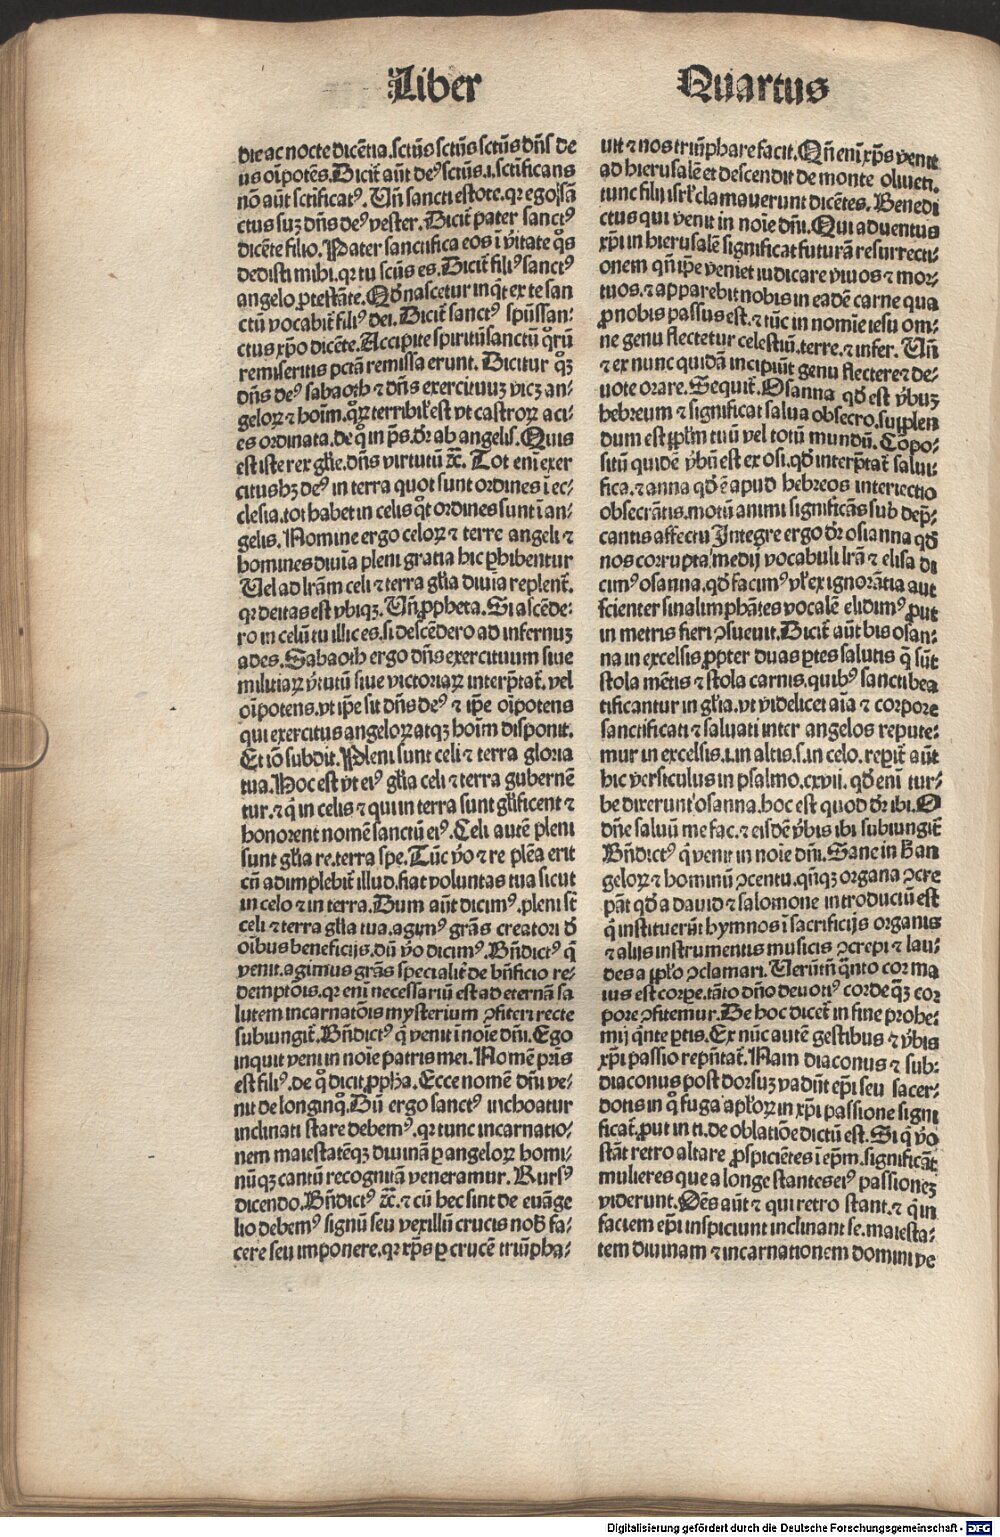 Liber Quartus
die ac nocte dicẽtia.sctũs sctũs sctũs dñs de
us oĩpotẽs.Dicit̃ aũt deꝰ sctũs.i.sctificans
nõ aũt sctificatꝰ. Vñ sancti estote.qꝛ ego sã
ctus suꝫ dñs deꝰ vester. Dicit̃ pater sanctꝰ
dicẽte filio. Pater sanctifica eos ĩ v̾itate qͦs
dedisti mihi.qꝛ tu sctũs es. Dicit̃ filiꝰ sanctꝰ
angelo ꝓtestãte. Qđ nascetur inqͥt ex te san
ctũ vocabit̃ filiꝰ dei. Dicit̃ sanctꝰ spũssan⸗
ctus xp̃o dicẽte. Accipite spiritũsanctũ qͦrũ
remiseritis pctã remissa erunt. Dicitur qͦꝫ
dñs deꝰ sabaoth ⁊ dñs exercituuꝫ vicꝫ an⸗
geloꝝ ⁊ hoĩm.qͦꝝ terribil̓ est vt castroꝝ aci⸗
es ordinata.de qͦ in p̃s.dr̃ ab angelis. Quis
est iste rex gl̓ie.dñs virtutũ ⁊c̃. Tot eni exer
citus hꝫ deꝰ in terra quot sunt ordines ĩ ec⸗
clesia.tot habet in celis qͦt ordines sunt ĩ an⸗
gelis. Nomine ergo celoꝝ ⁊ terre angeli ⁊
homines diuĩa pleni gratia hic ꝑhibentur
Uel ad lr̃am celi ⁊ terra gl̓ia diuĩa replent̃.
qꝛ deitas est vbiqꝫ. Vñ ꝓpheta. Si ascẽde⸗
ro in celũ tu illic es.si descẽdero ad infernuꝫ
ades. Sabaoth ergo dñs exercituum siue
militiaꝝ v̾tutũ siue victoriaꝝ interp̃tat̃. vel
oĩpotens.vt ip̃e sit dñs deꝰ ⁊ ip̃e oĩpotens
qui exercitus angeloꝝ atqꝫ hoĩm disponit.
Et iõ subdit. Pleni sunt celi ⁊ terra gloria
tua. Hoc est vt eiꝰ gl̓ia celi ⁊ terra gubernẽ
tur.⁊ qͥ in celis ⁊ qui in terra sunt gl̓ificent ⁊
honorent nomẽ sanctũ eiꝰ. Celi autẽ pleni
sunt gl̓ia re.terra spe. Tũc v̾o ⁊ re plẽa erit
cũ adimplebit̃ illud.fiat voluntas tua sicut
in celo ⁊ in terra. Dum aũt dicimꝰ.pleni st̃
celi ⁊ terra gl̓ia tua.agimꝰ grãs creatori đ
oĩbus beneficijs.dũ v̾o dicimꝰ. Bñdictꝰ qͥ
venit.agimus grãs specialit̃ de bñficio re⸗
demptõis.qꝛ eni necessariũ est ad eternã sa
lutem incarnatõis mysterium ꝯfiteri recte
subiungit̃. Bñdictꝰ qͥ venit ĩ noĩe dñi. Ego
inquit veni in noĩe patris mei. Nomẽ pr̃is
est filiꝰ.de qͦ dicit ꝓpħa. Ecce nomẽ dñi ve⸗
nit de longinqͦ. Dũ ergo sanctꝰ inchoatur
inclinati stare debemꝰ.qꝛ tunc incarnatio⸗
nem maiestatẽqꝫ diuinã ꝑ angeloꝝ homi⸗
nũqꝫ cantũ recognitã veneramur. Rursꝰ
dicendo. Bñdictꝰ ⁊c̃.⁊ cũ hec sint de euãge
lio debemꝰ signũ seu vexillũ crucis nob̃ fa⸗
cere seu imponere.qꝛ xp̃s ꝑ crucẽ triũpha⸗
uit ⁊ nos triũphare facit. Qñ eni xp̃s venit
ad hierusalẽ et descendit de monte oliueti.
tunc filij isrl̓ clamauerunt dicẽtes. Benedi
ctus qui venit in noĩe dñi. Qui aduentus
xp̃i in hierusalẽ significat futurã resurrecti⸗
onem qñ ip̃e veniet iudicare viuos ⁊ mor⸗
tuos.⁊ apparebit nobis in eadẽ carne qua
ꝓ nobis passus est.⁊ tũc in nomie iesu om⸗
ne genu flectetur celestiũ.terre.⁊ infer. Vñ
⁊ ex nunc quidã incipiũt genu flectere ⁊ de⸗
uote orare. Sequit̃. Osanna qđ est v̾buꝫ
hebreum ⁊ significat salua obsecro.supplen
dum est pp̃lm tuũ vel totũ mundũ. Cõpo⸗
sitũ quidẽ v̾bũ est ex osi.qđ interp̃tat̃ salui⸗
fica.⁊ anna qđ ẽ apud hebreos interiectio
obsecrãtis.motũ animi significãs sub dep̃⸗
cantis affectu Integre ergo dr̃ osianna qđ
nos corrupta medij vocabuli lr̃a ⁊ elisa di
cimꝰ osanna.qđ facimꝰ vl̓ ex ignorãtia aut
scienter sinalimphãtes vocalẽ elidimꝰ ꝓut
in metris fieri ꝯsueuit. Dicit̃ aũt bis osan⸗
na in excelsis ꝓpter duas ꝑtes salutis q̃ sũt
stola mẽtis ⁊ stola carnis.quibꝰ sancti bea
tificantur in gl̓ia.vt videlicet aĩa ⁊ corpore
sanctificati ⁊ saluati inter angelos repute⸗
mur in excelsis.i.in altis.s.in celo.reperit̃ aũt
hic versiculus in psalmo.cxvii. qđ eni tur⸗
be dixerunt osanna.hoc est quod dr̃ ibi. O
dñe saluũ me fac.⁊ eisdẽ v̾bis ibi subiungit̃
Bñdictꝰ qͥ venit in noĩe dñi. Sane in h̾ an
geloꝝ ⁊ hominũ ꝯcentu.qñqꝫ organa ꝯcre
pãt qđ a dauid ⁊ salomone introductũ est
qͥ instituerũt hymnos ĩ sacrificijs organis
⁊ aliis instrumentis musicis ꝯcrepi ⁊ lau⸗
des a pp̃lo ꝯclamari. Verũtñ qͣnto cor ma
ius est corpe.tãto dño deuotiꝰ corde qͣꝫ cor
pore ꝯfitemur. De hoc dicet̃ in fine prohe⸗
mij qͥnte ꝑtis. Ex nũc autẽ gestibus ⁊ v̾bis
xp̃i passio rep̃ntat̃. Nam diaconus ⁊ sub⸗
diaconus post dorsuꝫ vadũt ep̃i seu sacer⸗
dotis in qͦ fuga ap̃loꝝ in xp̃i passione signi
ficat̃.ꝓut in ti.de oblatiõe dictũ est. Si qͥ v̾o
stãt retro altare ꝓspiciẽtes ĩ ep̃m.significãt
mulieres que a longe stantes eiꝰ passioneꝫ
viderunt. Oẽs aũt ⁊ qui retro stant.⁊ qͥ in
faciem ep̃i inspiciunt inclinant se.maiesta⸗
tem diuinam ⁊ incarnationem domini ve
Digitalisierung gefördert durch die Deutsche Forschungsgemeinschaft - DFG